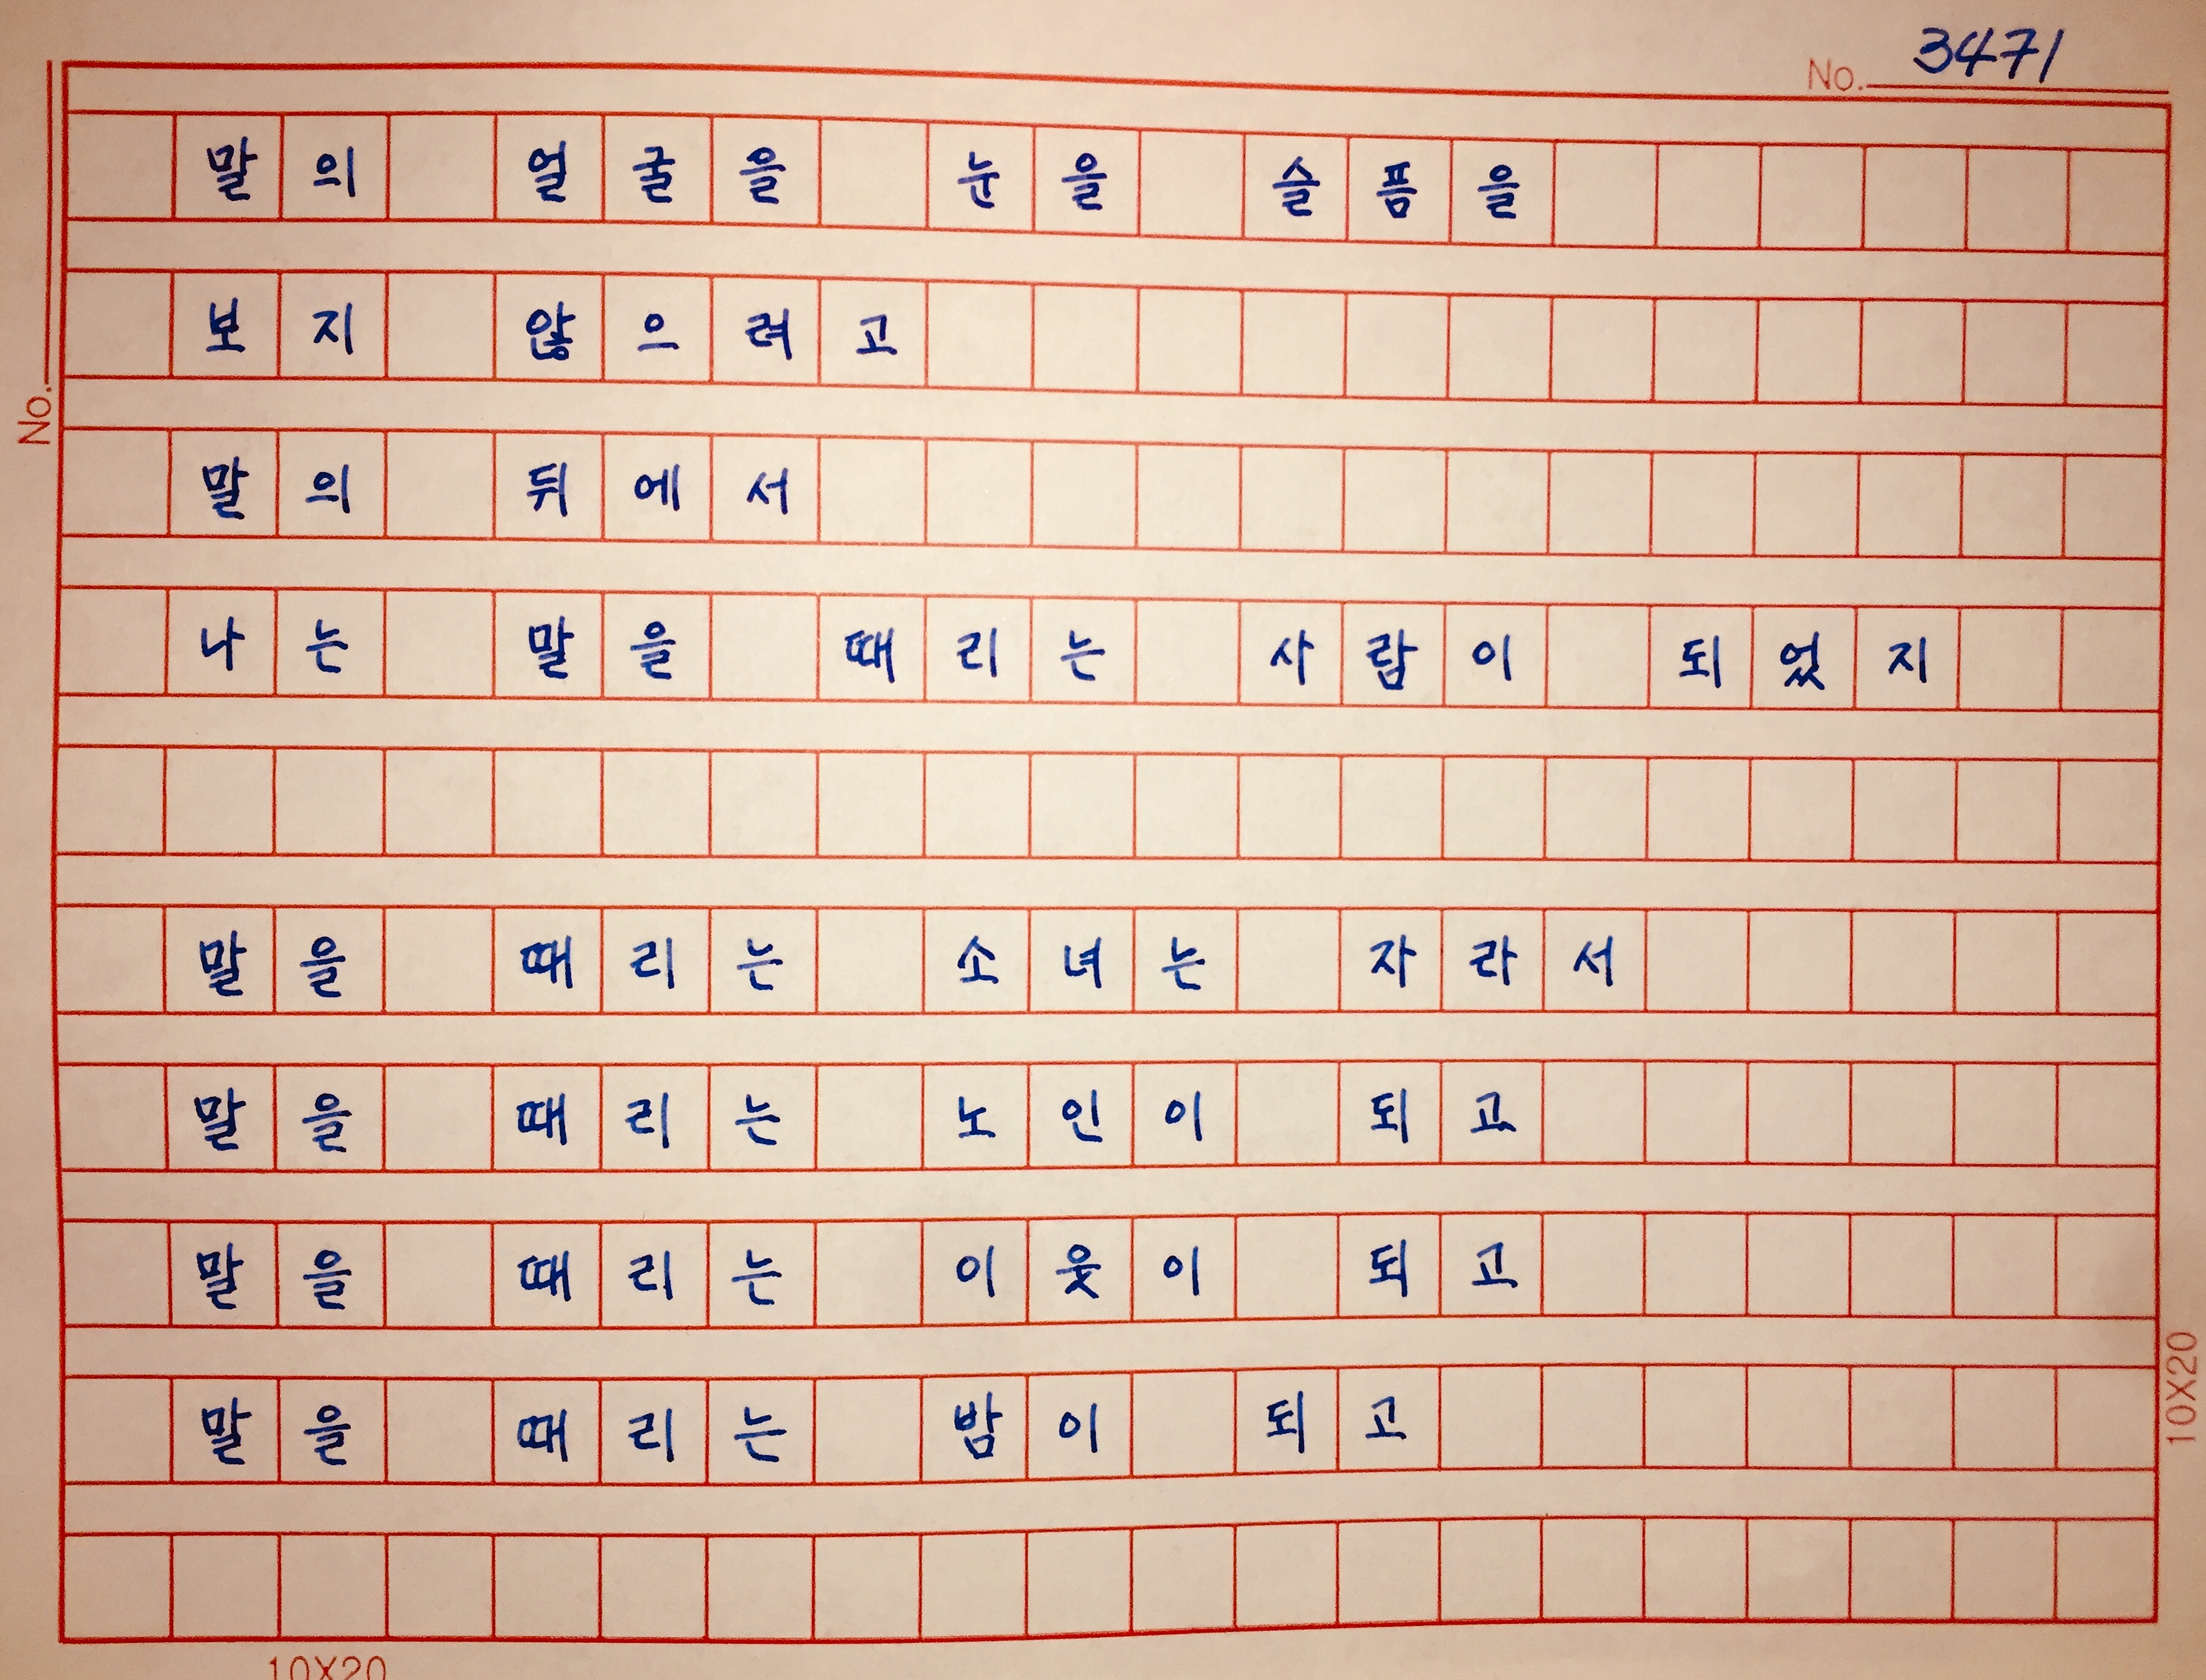 No. 3471
말의 얼굴을 눈을 슬픔을
보지 않으려고
No.
말의 뒤에서
나는 말을 때리는 사람이 되었지
말을 때리는 소녀는 자라서
말을 때리는 노인이 되고
말을 때리는 이웃이 되고
말을 때리는 밤이 되고
10X20
10X20